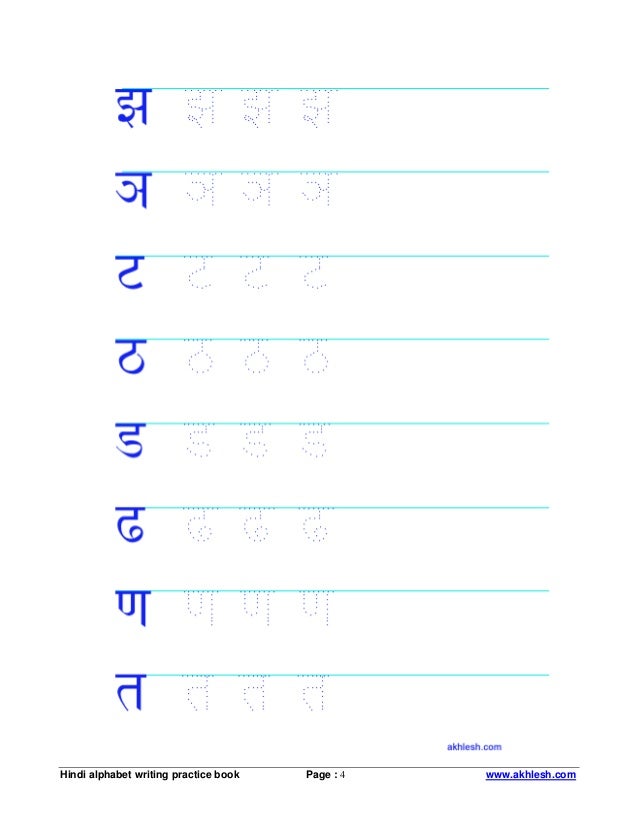 झ झ झ झ
ञ ञ ञ ञ
ट ट ट ट
ठ ठ ठ ठ
ड ड ड ड
ढ ढ ढ ढ
ण ण ण ण
त त त त
akhlesh.com
Hindi alphabet writing practice book Page : 4 www.akhlesh.com